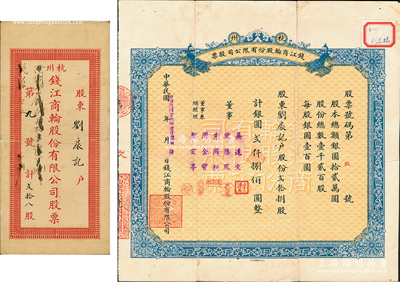 股東劉宸記戶
杭州錢江商輪股份有限公司股票
第九號計弍拾八股
杭州
錢江商輪股份有限公司股票
股票號碼第 玖 號
股本總額銀圓拾弍萬圓
股份總數壹千弍百股
每股銀圓壹百圓
股東劉宸記戶股份弍拾捌股
計銀圓弍仟捌佰圓整
董事
董事兼總經理
中華民國 年 月 日錢江商輪股份有限公司